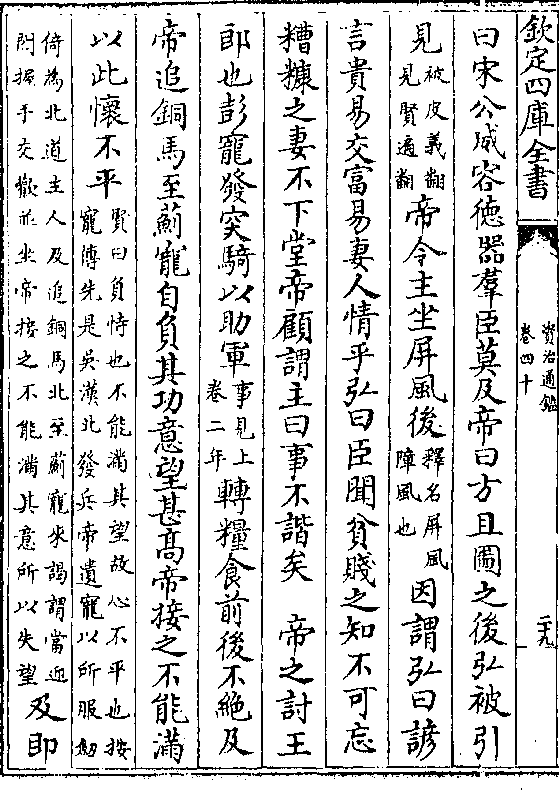 欽定四庫全書
資治通鑑
卷四十
二十九
曰宋公威容徳器羣臣莫及帝曰方且圖之後弘被引
見被皮義翻
見賢遍翻帝令主坐屏風後釋名屏風
障風也因謂弘曰諺
言貴易交富易妻人情乎弘曰臣聞貧賤之知不可忘
糟糠之妻不下堂帝顧謂主曰事不諧矣　帝之討王
郎也彭寵發突騎以助軍事見上
卷二年轉糧食前後不絶及
帝追銅馬至薊寵自負其功意望甚髙帝接之不能滿
以此懷不平賢曰負恃也不能滿其望故心不平也按
寵傳先是吳漢北發兵帝遺寵以所服劒
倚為北道主人及追銅馬北至薊寵來謁謂當迎
閤握手交歡並坐帝接之不能滿其意所以失望及即